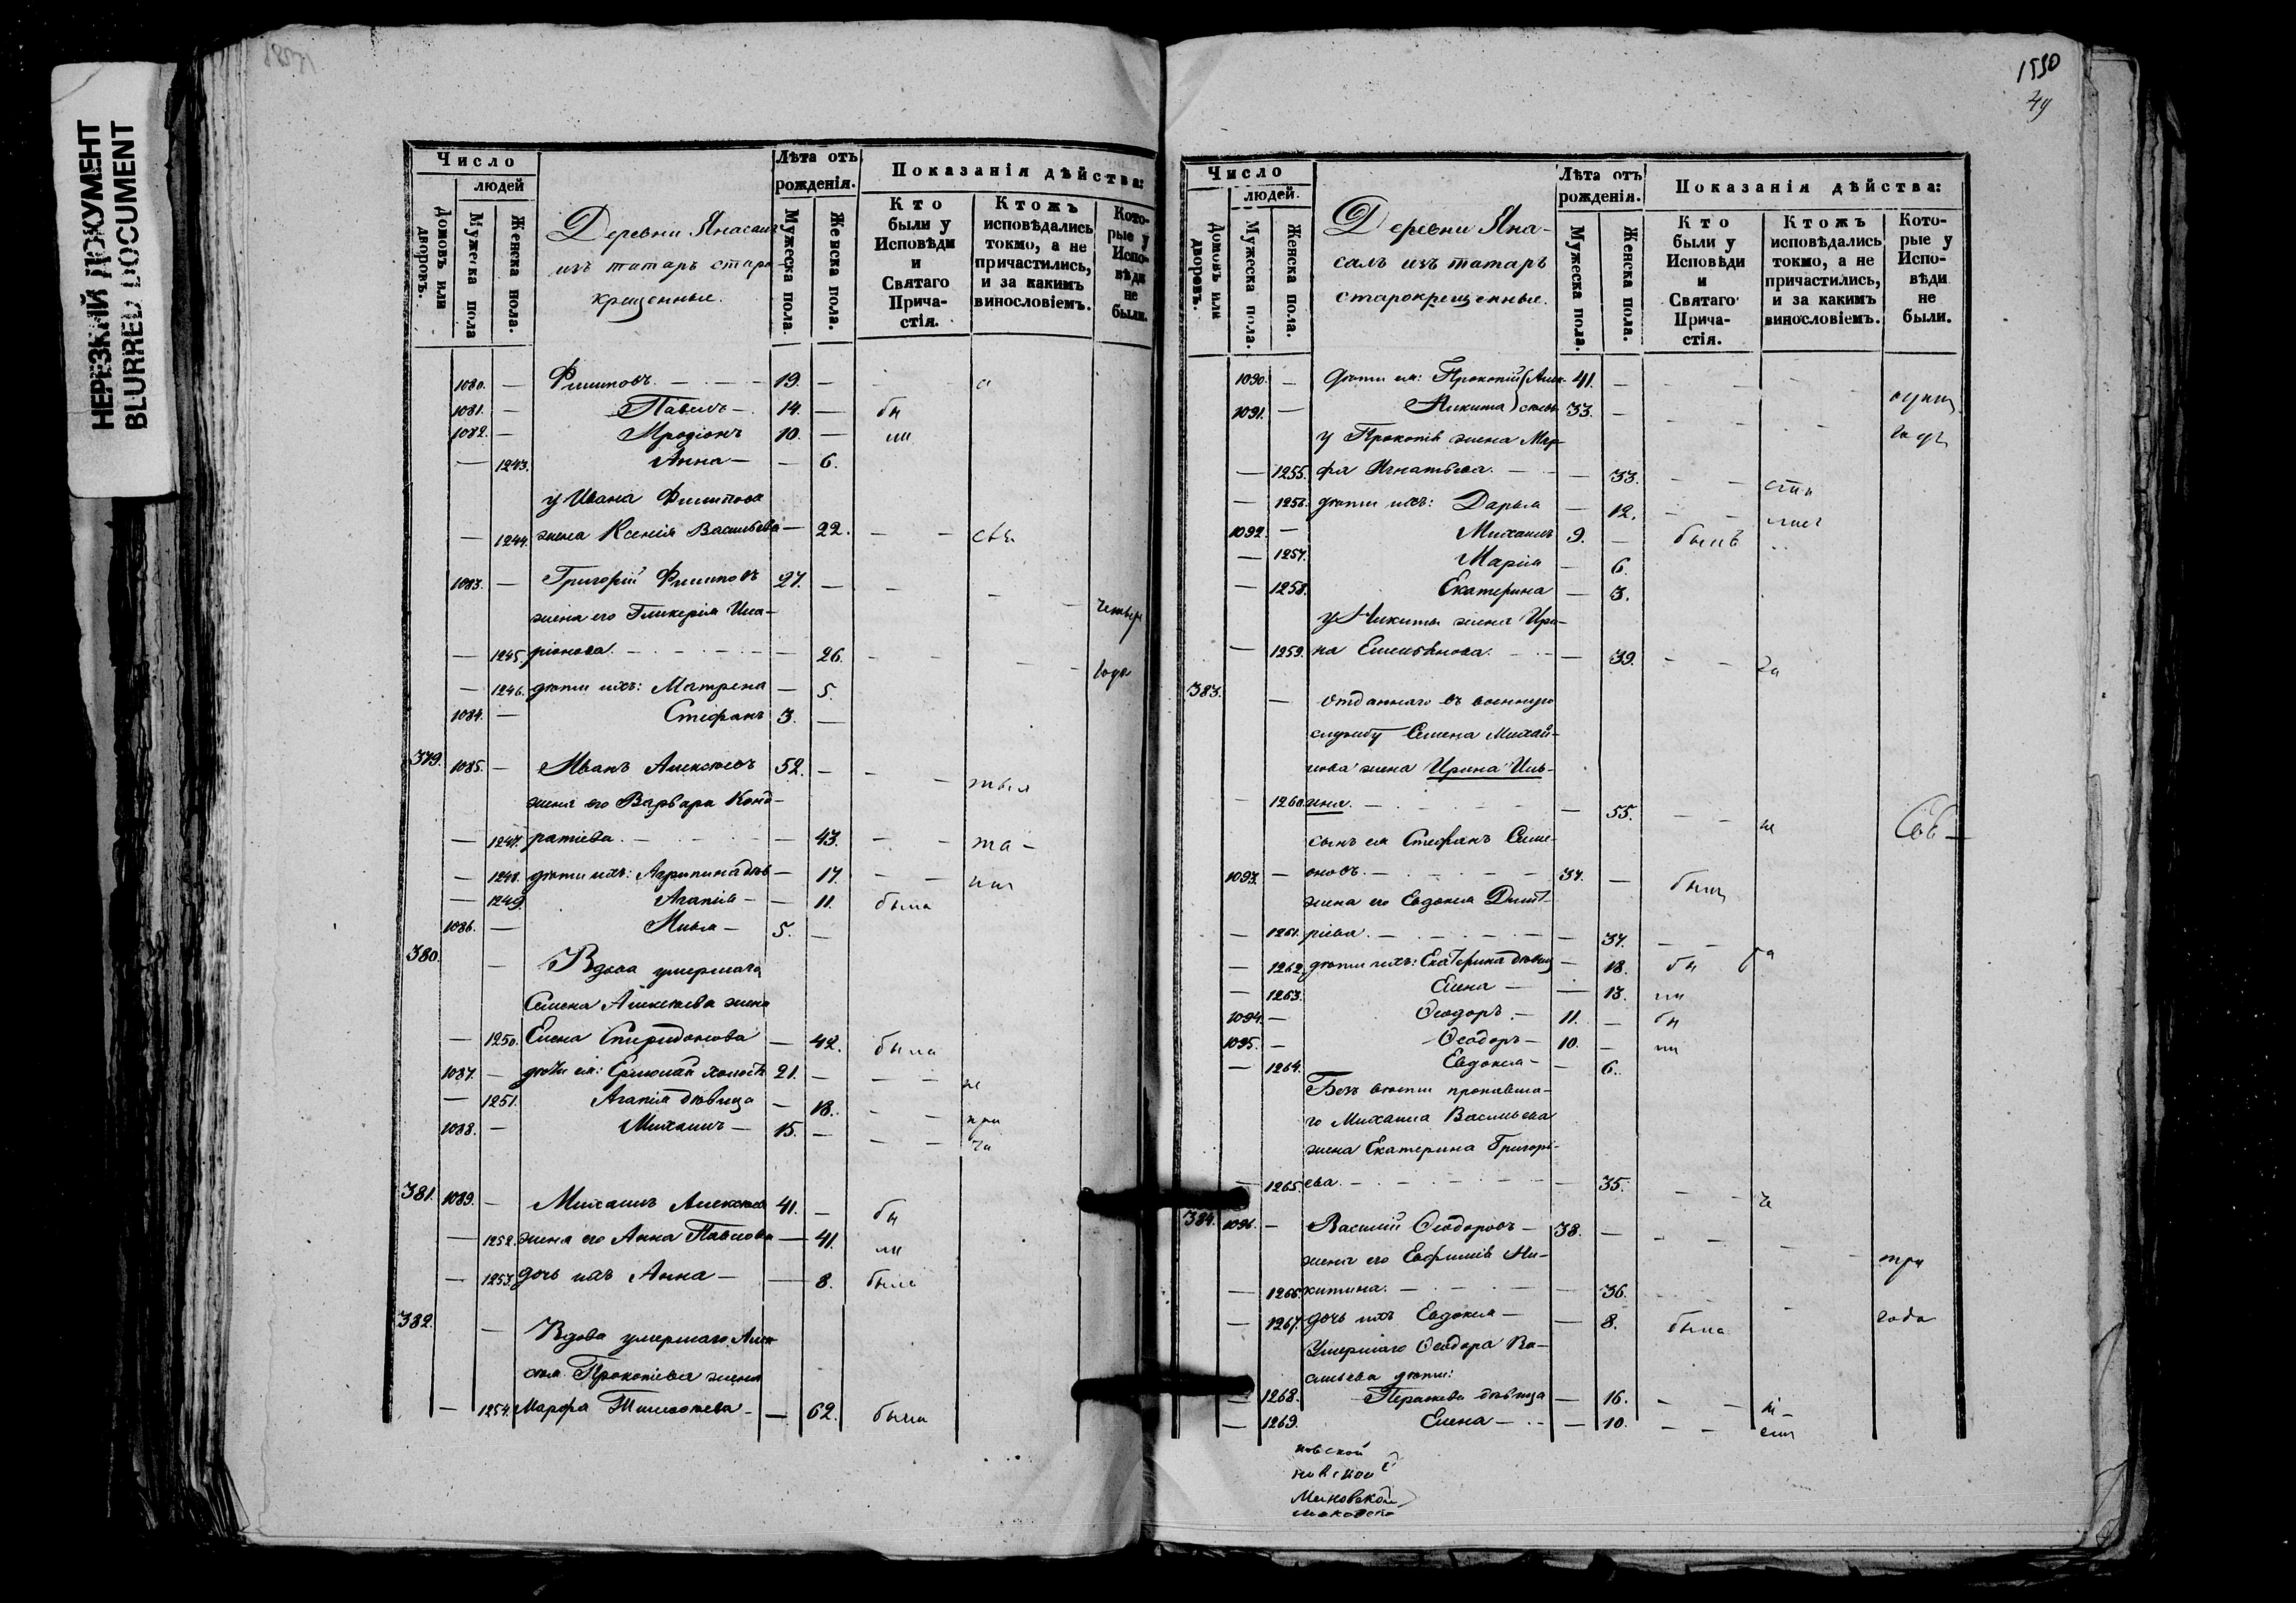 НЕРЕЗКИЙ ДОКУМЕНТ
BLURRED DOCUMENT
Число
людей
Домовъ или дворовъ.
Мужеска пола
Женска пола.
Деревни Янасалъ
изъ татаръ старо-
крещенные.
Лѣта отъ рожденія.
Мужеска пола.
Женска пола.
Показанія дѣйства:
Кто были у Исповѣди и Святаго Прича-стія.
Ктожъ исповѣдались токмо, а не причастились, и за какимъ винословіемъ.
Кото-рые у Испо-вѣди не были.
1080. — Филиповъ. — 19. —
1081. — Павелъ — 14. — бы
1082. — Иродіонъ 10. — ли
— 1243. Анна — — 6.
у Ивана Филипова
— 1244. жена Ксенія Васильева — 22. — —
1083. — Григорій Филиповъ 27. — — — — четыре
жена его Гликерія Ила-
— 1245. ріонова. — — 26. — — года
— 1246. дѣти ихъ: Матрена — 5.
1084. — Стефанъ 3. —
379. 1085. — Иванъ Алексѣевъ 52. — — —
жена его Варвара Конд-
— 1247. ратіева. — — 43. — —
— 1248. дѣти ихъ: Агрипина дѣв — 17. — —
— 1249. Агапія — — 11. была
1086. — Илья — 5. —
380. — Вдова умершаго
Семена Алексѣева жена
— 1250. Елена Спиридонова — 42. была
1087. — дѣти ея: Ермолай холостъ 21. — — — не
— 1251. Агапія дѣвица — 18. — — при
1088. — Михаилъ — 15. — — — ча
381. 1089. — Михаилъ Алексѣевъ 41. — бы
— 1252. жена его Анна Павлова — 41. ли
— 1253. дочь ихъ Анна — — 8. была
382. — Вдова умершаго Алек-
сѣя Прокопіева жена
— 1254. Марфа Тимофеева — — 62. была
1550
49
Число
людей.
Домовъ или дворовъ.
Мужеска пола.
Женска пола.
Деревни Яна-
салъ изъ татаръ
старокрещенные.
Лѣта отъ рожденія.
Мужеска пола.
Женска пола.
Показанія дѣйства:
Кто были у Исповѣди и Святаго Прича-стія.
Ктожъ исповѣдались токмо, а не причастились, и за какимъ винословіемъ.
Кото-рые у Испо-вѣди не были.
1090. — Дѣти ея: Прокопій (Алек- 41. — — — один
1091. — Никита) сѣевы 33. — — — годъ
у Прокопія жена Мар-
— 1255. фа Игнатьева. — — 33. — —
— 1256. дѣти ихъ: Дарья — 12. — —
1092. — Михаилъ 9. — былъ
— 1257. Марія — 6.
— 1258. Екатерина — 3.
у Никиты жена Ири-
— 1259. на Емельянова. — — 39. — —
383. — Отданнаго въ военную
службу Семена Михай-
лова жена Ирина Иль-
— 1260. ина. — — 55. — — не
сынъ ея Стефанъ Семе-
1093. — оновъ. — 37. — были
жена его Евдокія Димит-
— 1261. ріева. — — 37. — —
— 1262. дѣти ихъ: Екатерина дѣвица — 18. бы
— 1263. Елена — — 13. ли
1094. — Ѳеодоръ — 11. — бы
1095. — Ѳеодоръ — 10. — ли
— 1264. Евдокія — — 6.
Безъ вѣсти пропавша-
го Михаила Васильева
жена Екатерина Григорь-
— 1265. ева. — — 35. — —
384. 1096. — Василій Ѳеодоровъ — 38. — — — три
жена его Евфимія Ни-
— 1266. китина. — — 36. — года
— 1267. дочь ихъ Евдокія — — 8. была
Умершаго Ѳеодора Ва-
сильева дѣти:
— 1268. Перасковія дѣвица — 16. — —
— 1269. Елена — — 10. — —